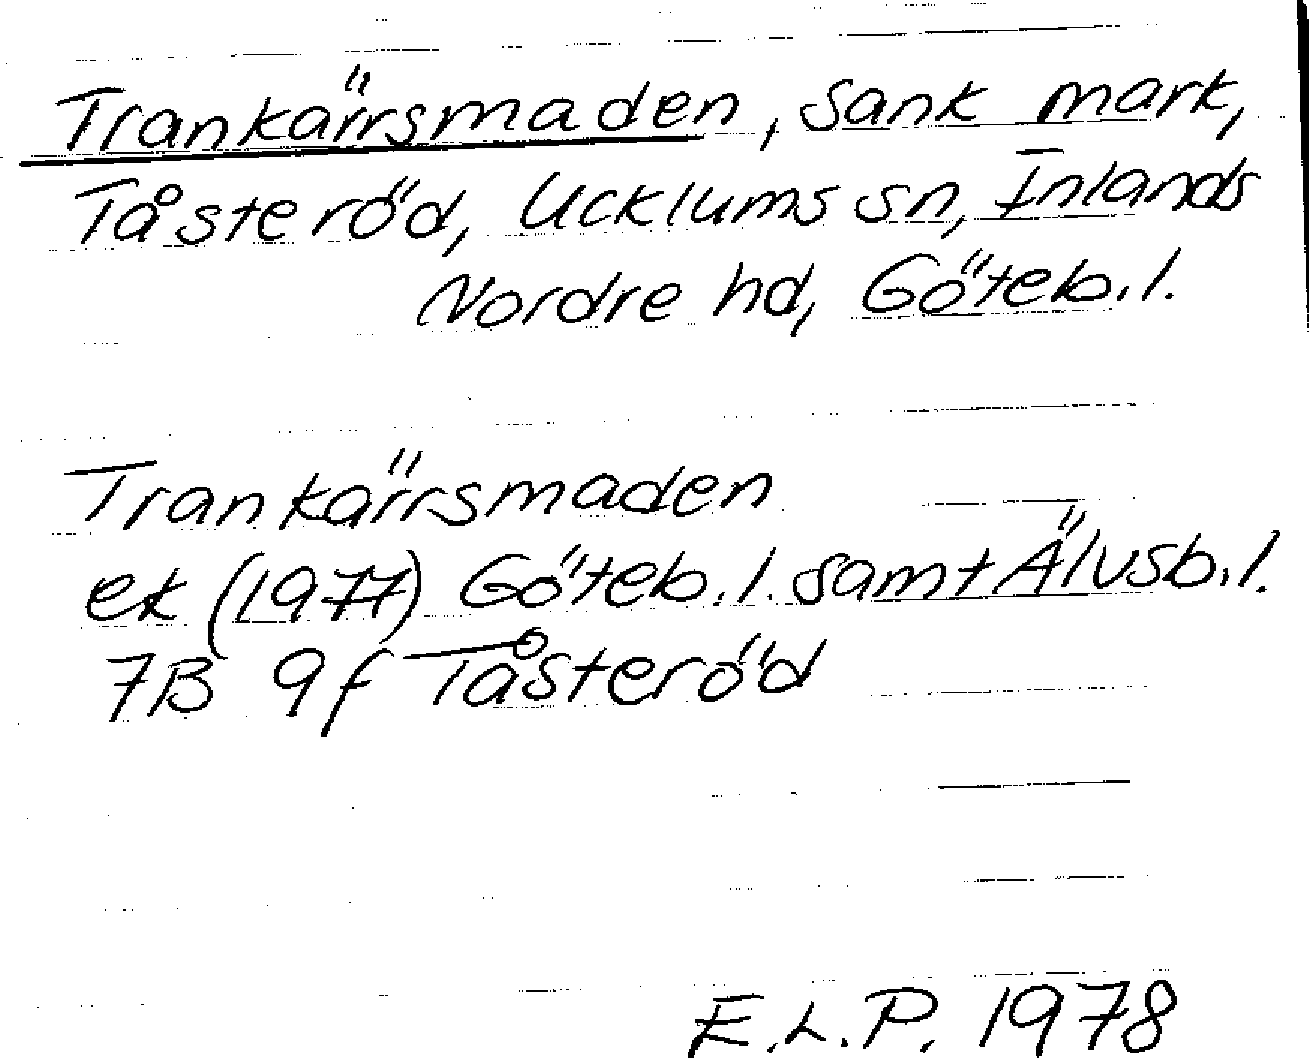 Trankärrsmaden, sank mark,
Tåsteröd, Ucklums sn, Inlands
Nordre hd, Göteb.l.
Trankärrsmaden
ek (1977) Göteb.l. samt Älvsb.l.
7B 9f Tåsteröd
E.L.P. 1978